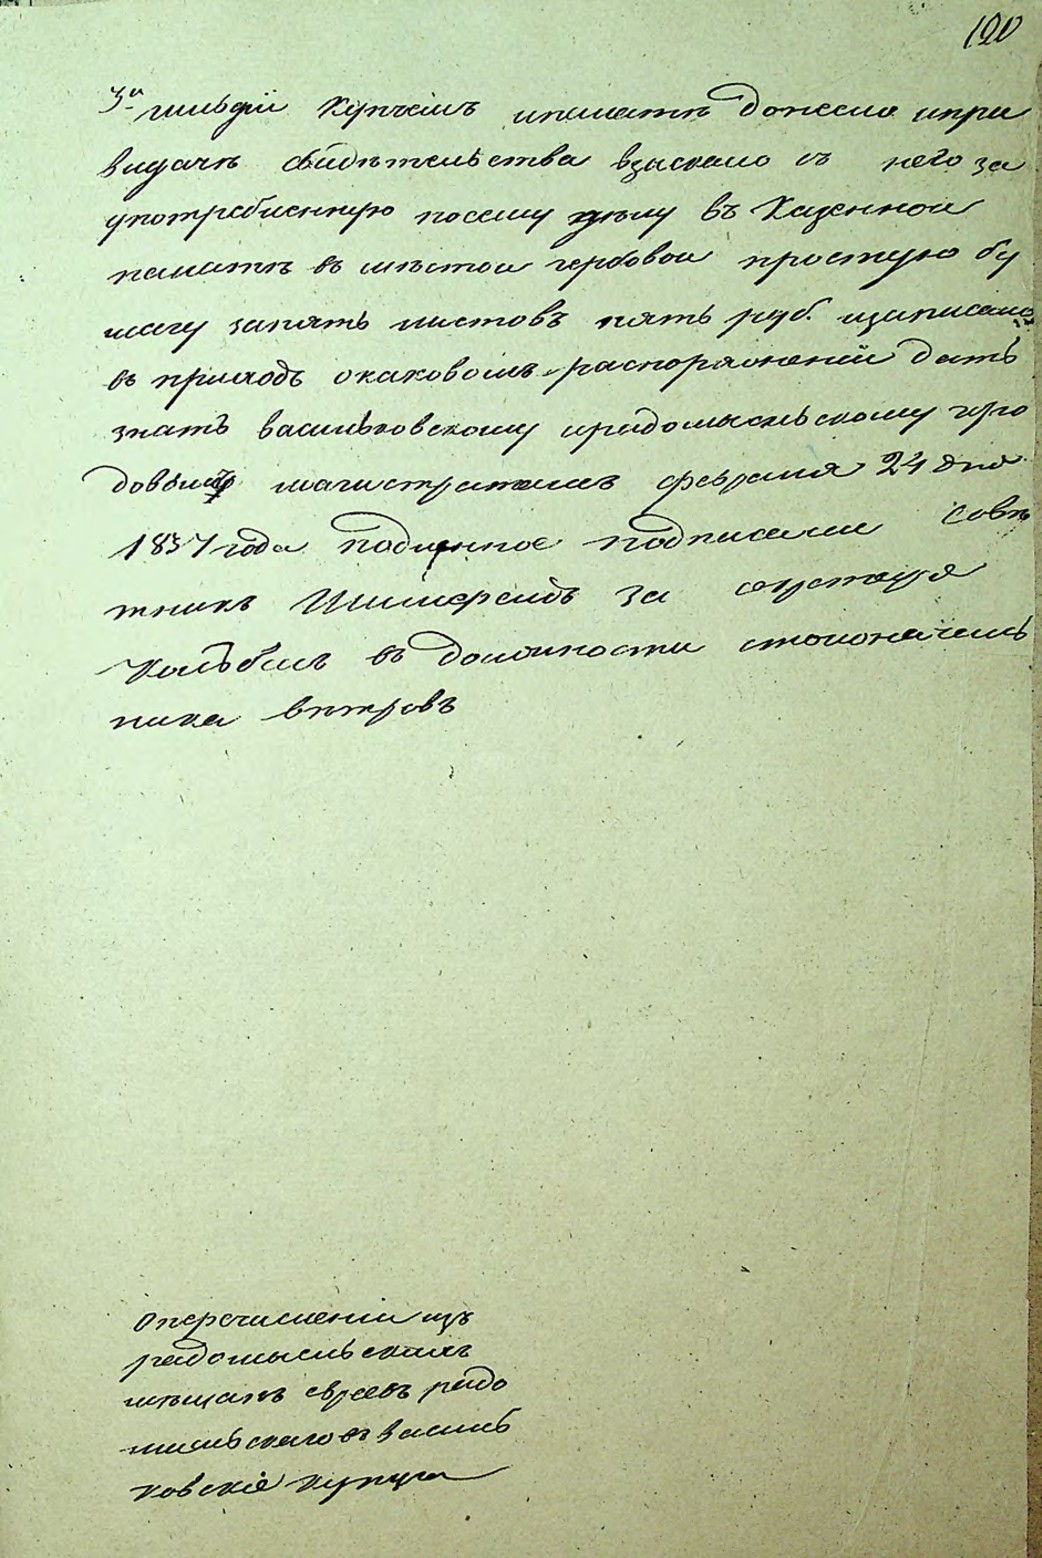 120
3й гильдіи купчемъ ипалатѣ донесло ипри
видачѣ свидѣтельства взыскало съ него за
употребленную посему дѣлу въ Казенной
палатѣ въ мѣстои гербовои простую бу
магу запять листовъ пять руб. изаписано
въ приходъ окаковомъ распоряженіи дать
знать васильковскому ирадомысльскому горо
довымъ магистратамъ февраля 24 дня
1837 года подлинное подписали Совѣ
тникъ за секретаря
въ должности столоначаль
ника Вѣтровъ
Оперечисленіи изъ
радомысльскихъ
мѣщанъ евреевъ радо
мысльскаго въ василь
ковскіе купцы